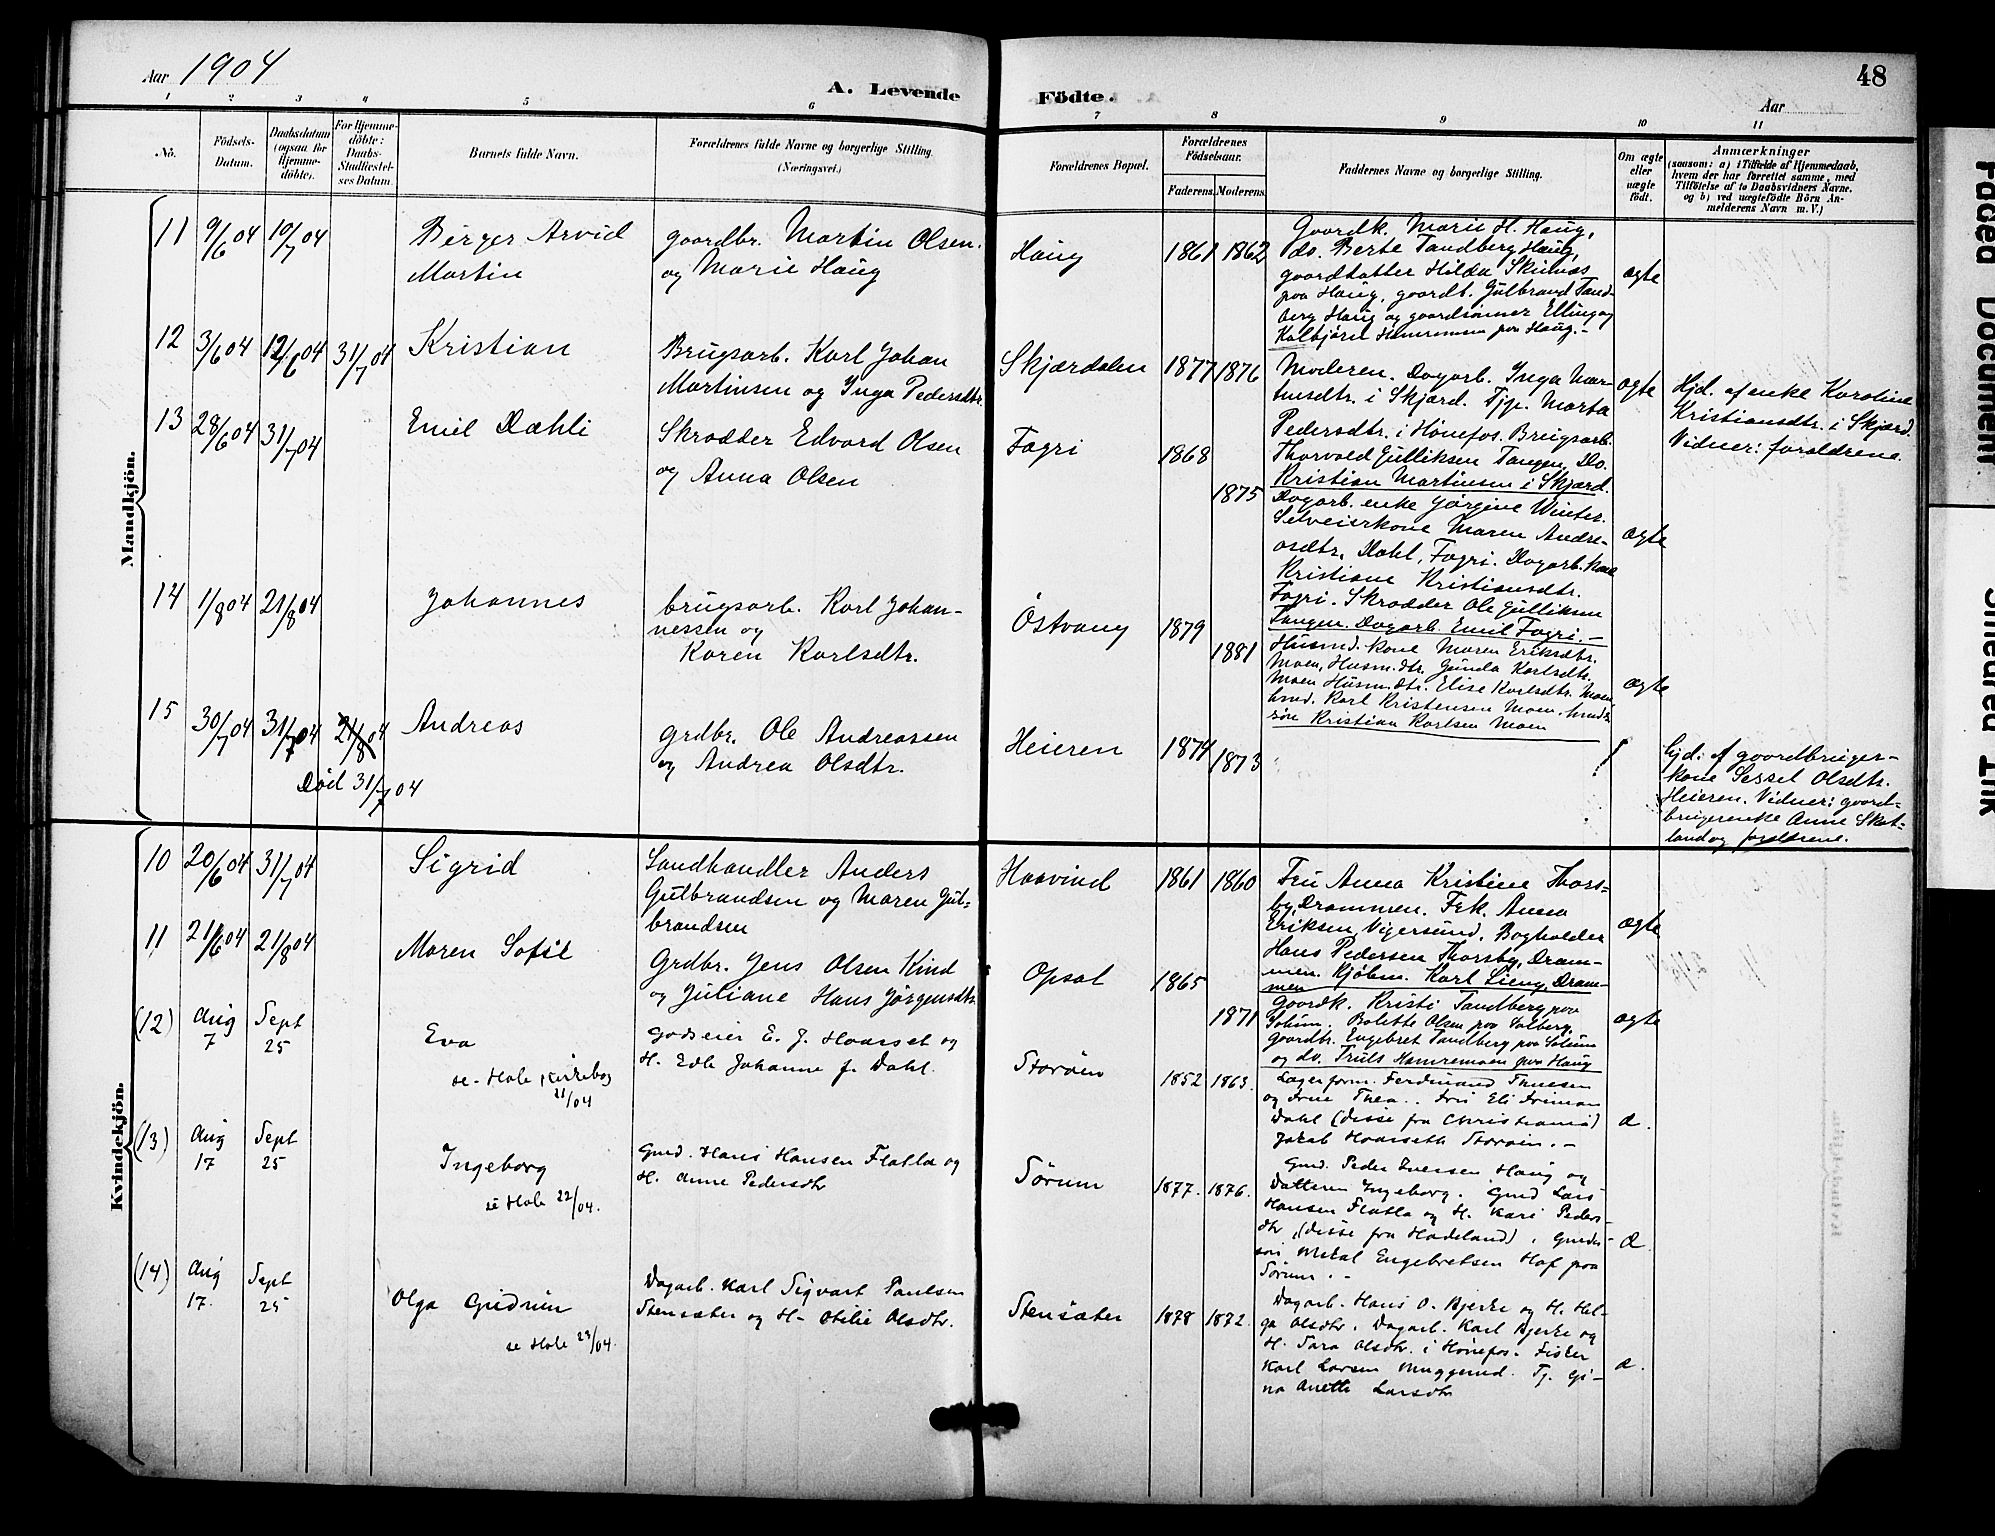 Aar 1904
A. Levende Födte.
48
Aar
1 2 3 4 5 6 7 8 9 10 11
No.
Födsels-Datum.
Daabsdatum (ogsaa for Hjemmedöbte).
For Hjemmedöbte: Daabs-Stadfæstelses Datum.
Barnets fulde Navn.
Forældrenes fulde Navne og borgerlige Stilling. (Næringsvei.)
Forældrenes Bopæl.
Forældrenes Födselsaar.
Faderens. Moderens.
Faddernes Navne og borgerlige Stilling.
Om ægte eller uægte födt.
Anmærkninger
(saasom: a) i Tilfælde af Hjemmedaab,
hvem der har forrettet samme, med
Tilföielse af to Daabsvidners Navne.
og b) ved uægtefödte Börn An-
melderens Navn m. V.)
Mandkjön.
11 9/6 04 10/7 04
Birger Arvid
Martin
gaardbr. Martin Olsen
og Marie Haug
Haug
1861 1862
Gaardk. Marie H. Haug,
do. Berte Tandberg Haug,
gaarddatter Hilda Skulnæs
paa Haug, gaardb. Gulbrand Tand-
berg Haug og gaardsönner Elling og
Kolbjörn Hamremoen paa Haug.-
ægte
12 3/6 04 12/6 04 31/7 04
Kristian
Brugsarb. Karl Johan
Martinsen og Inga Pedersdtr.
Skjærdalen
1877 1876
Moderen. Dagarb. Inga Mar-
tinsdtr. i Skjærd. Tjp. Marta
Pedersdtr. i Hönefos. Brugsarb.
Thorvald Gulliksen Tangen. Do.
Kristian Martinsen i Skjærd.
ægte
Hjd. af enke Karoline
Kristiansdtr. i Skjærd.
Vidner: forældrene.
13 28/6 04 31/7 04
Emil Dæhli
Skrædder Edvard Olsen
og Anna Olsen
Fagri
1868
1875
Dagarb. enke Jörgine Winter.
Selveierkone Maren Andre-
asdtr. Dahl, Fagri. Dagarb. kone
Kristiane Kristiansdtr.
Fagri. Skrædder Ole Gulliksen
Tangen. Dagarb. Emil Fagri.-
ægte
14 1/8 04 21/8 04
Johannes
brugsarb. Karl Johan-
nessen og
Karen Karlsdtr.
Östvang
1879
1881
Husmd. kone Maren Eriksdtr.
Moen, Husm. dtr. Gunda Karlsdtr.
Moen Husm. dtr. Elise Karlsdtr. Moen
husd. Karl Kristensen Moen. husds
sön Kristian Karlsen Moen
ægte
15 30/7 04 31/7 04 21/8 04
Andreas
Död 31/7 04
grdbr. Ole Andreassen
og Andrea Olsdtr.
Heieren
1874 1873
Hjd: af gaardbruger-
kone Sessel Olsdtr.
Heieren. Vidner: gaard-
brugerenke Anne Sket-
land og forældrene.
Kvindekjön.
10 20/6 04 31/7 04
Sigrid
Landhandler Anders
Gulbrandsen og Maren Gul-
brandsen
Haavind
1861 1860
Fru Anna Kristine Thors-
by, Drammen. Frk. Anna
Eriksen, Vigersund. Bogholder
Hans Pedersen Thorsby, Dram-
men. Kjöbm. Karl Lieng, Dram-
men
ægte
11 21/6 04 21/8 04
Maren Sofie
Grdbr. Jens Olsen Kind
og Juliane Hans Jörgensdtr.
Opsal
1865
1871
Gaardk. Kristi Tandberg paa
Solum. Bolette Olsen paa Solberg,
Gaardtr. Engebret Tandberg paa Solum
og do. Truls Hamremoen paa Haug
ægte
(12) Aug 7 Sept 25
Eva
se - Hole Kirkebog
21/04
Godseier E. J. Haarset og
H. Edle Johanne f. Dahl.
Storöen
1852 1863.
Lagerform. Ferdinand Thuesen
og Frue Thea.. Fru Eli Friman
Dahl (Disse fra Christiania)
Jakob Haarseth Storöin.-
æ.
(13) Aug 17 Sept 25
Ingeborg
se Hole 22/04.
Gmd. Hans Hansen Flatla og
H. Anne Pedersdtr
Sörum
1877. 1876.
Gmd. Peder Iversen Haug og
Datteren Ingeborg. Gmd Lars
Hansen Flatla og H. Kari Peders-
dtr, (Disse fra Hadeland), Gmds-
sön Mekal Engebretsen Hof paa
Sörum.-
æ.
(14) Aug 17. Sept 25
Olga Gudrun
se Hole 23/04.
Dagarb. Karl Sigvart Paulsen
Stensæter og H- Otilie Olsdtr.
Stensæter
1878 1872.
Dagarb. Hans O. Bjerke og H. Hel-
ga Olsdtr, Dagarb. Karl Bjerke og
H. Sara Olsdtr. i Hönefos. Fisker
Karl Larsen Muggerud. Tj. Gi-
na Anette Larsdtr
æ.
Faded Document.
Smeared Ink